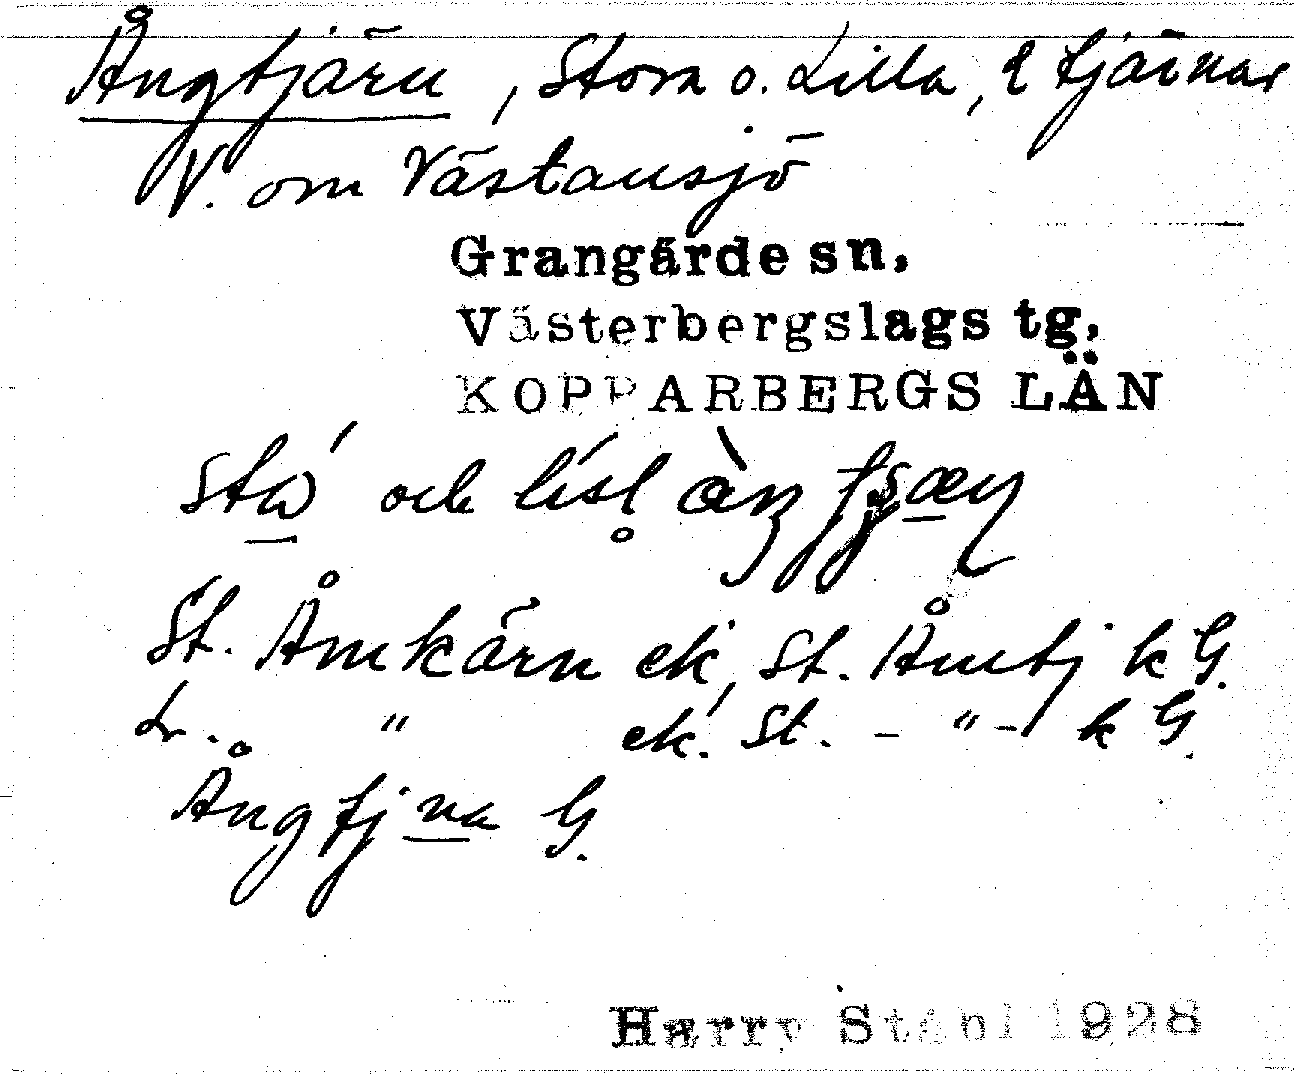 Ångtjärn, Stora o. Lilla, 2 tjärnar
V. om Västansjö
Grangärde sn,
Västerbergslags tg,
KOPPARBERGS LÄN
och
St. Åmkärn ek, St. Åmtj k G.
L. " ek. St. - " - k G.
Ångtjna G.
Harry Ståhl 1928